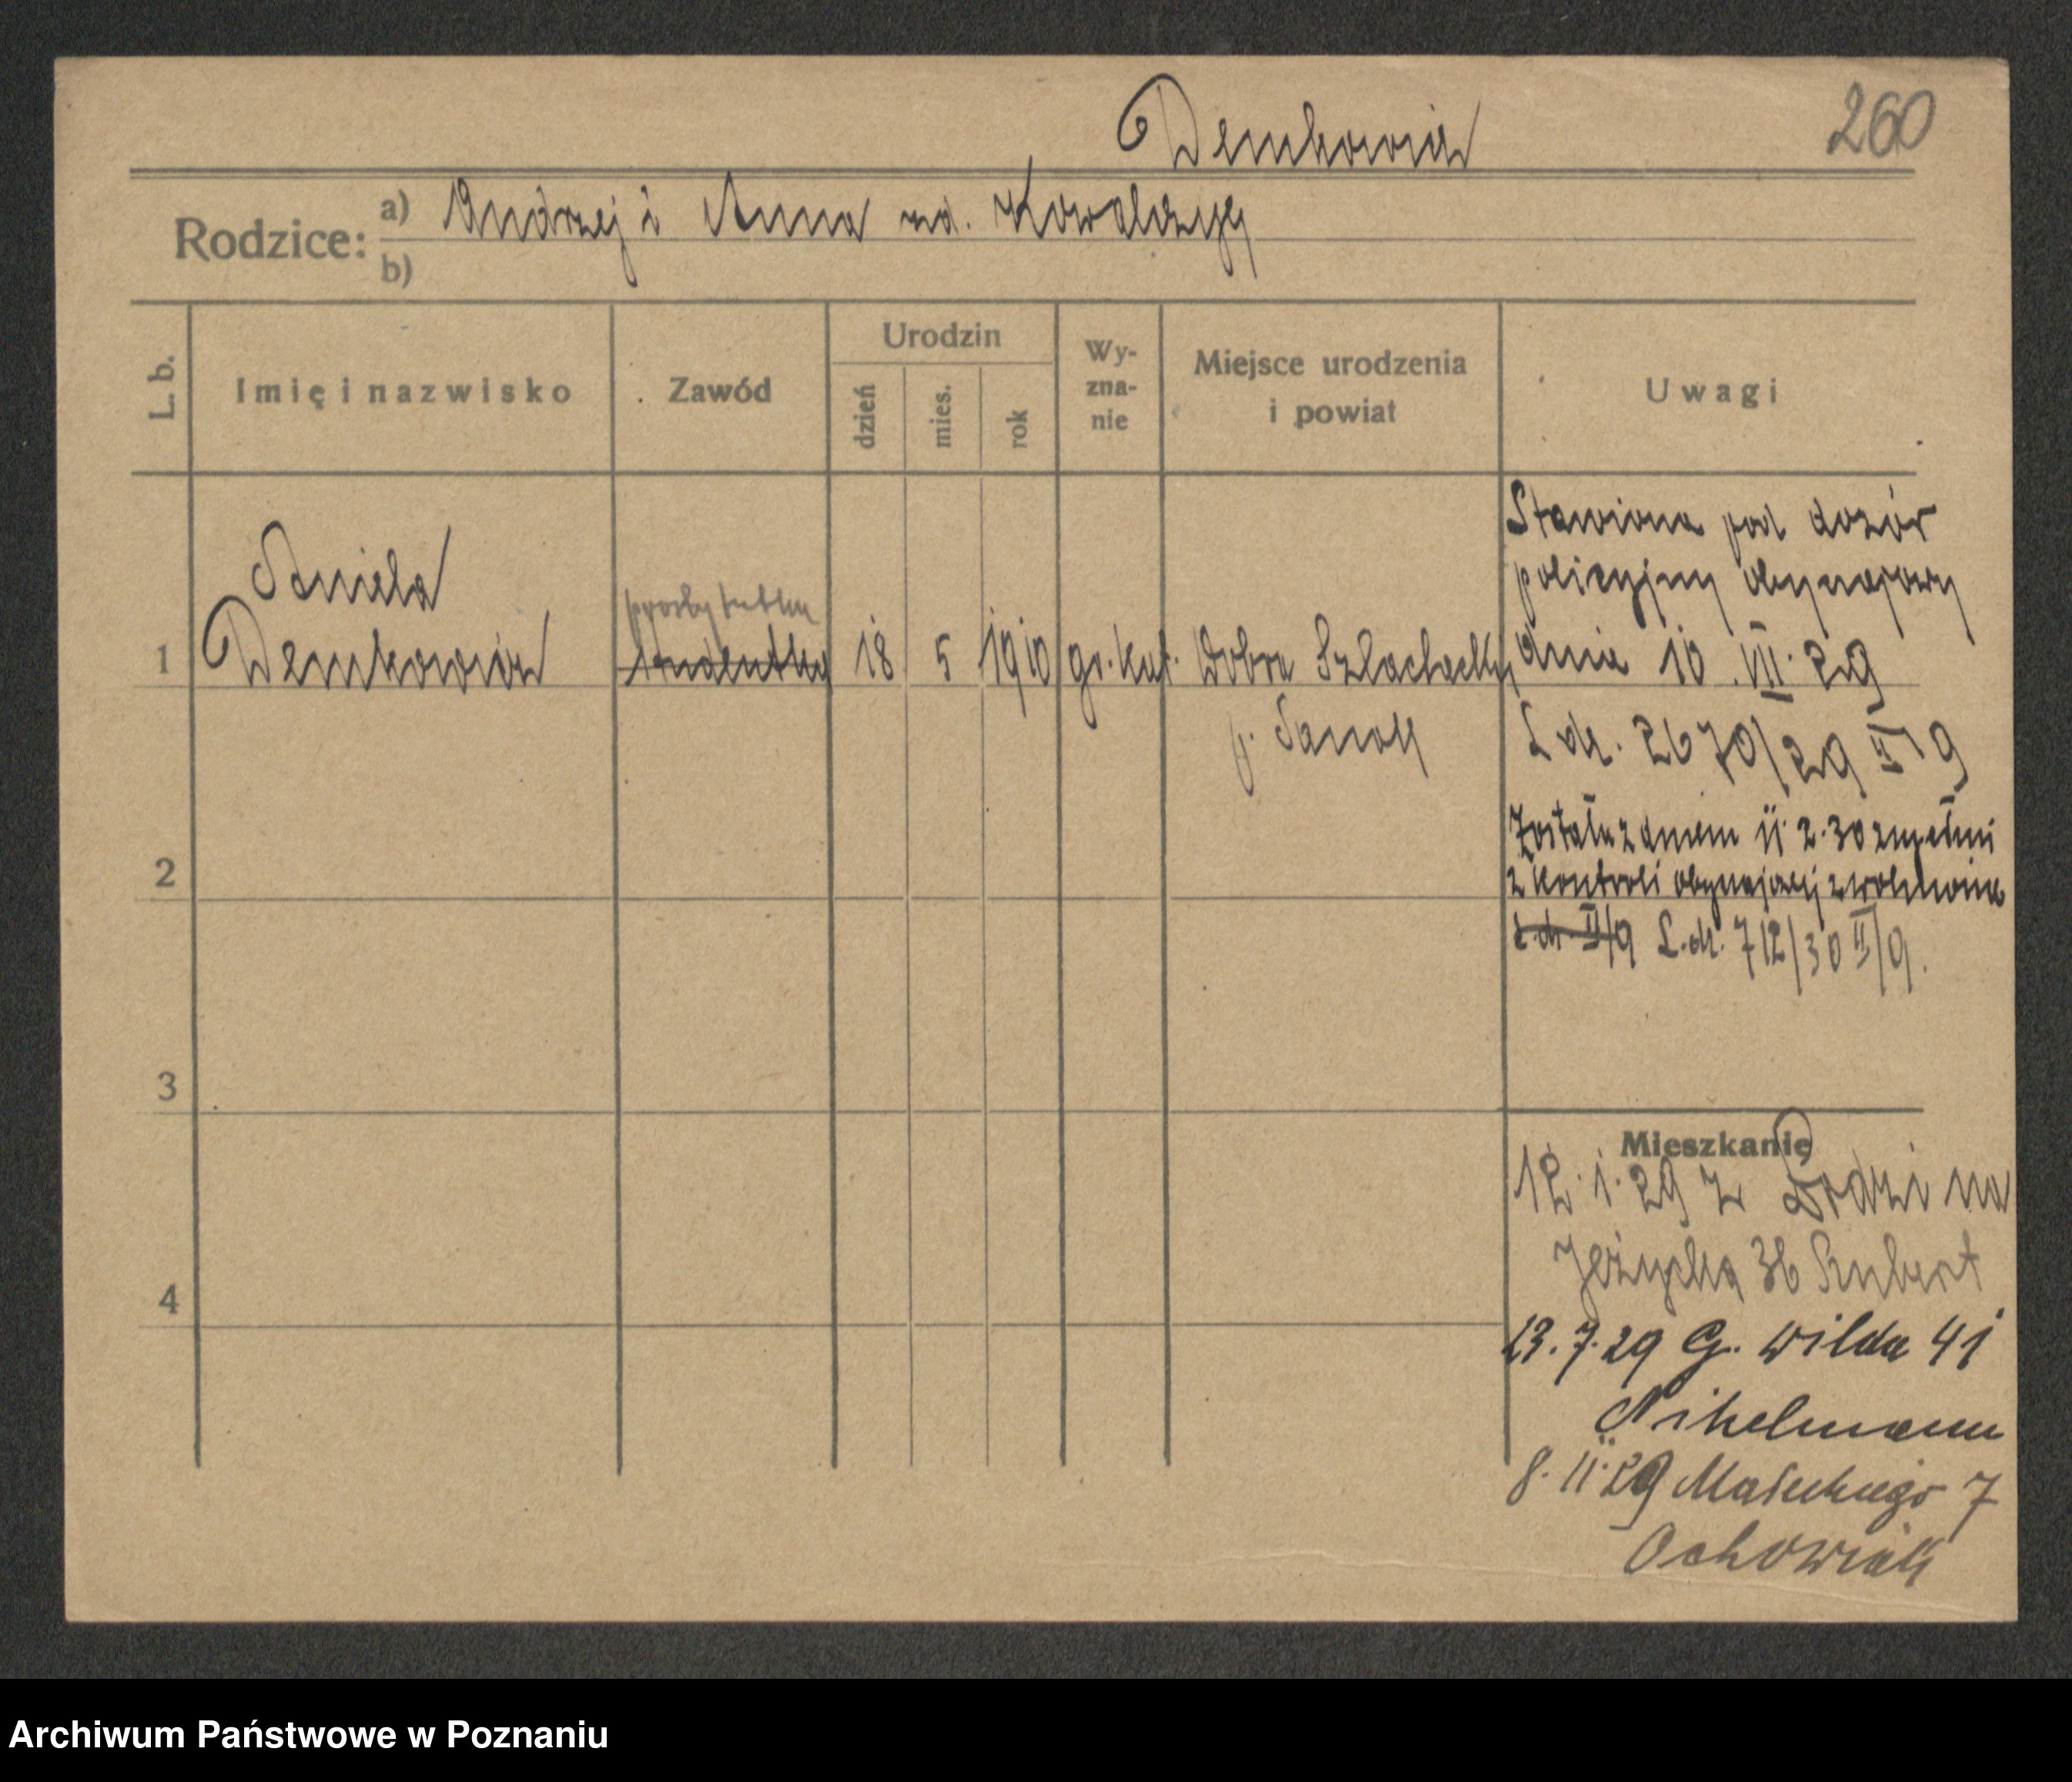 Demkowicz
260
Rodzice: a) Andrzej i Anna zd. Kowalczyk
b)
L. b.
Imię i nazwisko
Zawód
Urodzin
dzień
mies.
rok
Wy-
zna-
nie
Miejsce urodzenia
i powiat
Uwagi
Aniela
prostytutka
1 Demkowicz studentka 18 5 1910 gr. kat. Dobra Szlachecka
p. Sanok
Stawiona pod dozór
policyjny obyczajowy
dnia 10. VII. 29
L. dz. 2670/29 II/9
Została z dniem 11. 2. 30
z kontroli obyczajowej zwolniona
L. dz. II/9 L. dz. 712/30 II/9.
2
3
4
Mieszkanie
12. 1. 29 z Łodzi na
Jeżycka 36 Szubert
23. 7. 29 G. Wilda 41
Nikelmann
8. 11. 29 Małeckiego 7
Ochowiak
Archiwum Państwowe w Poznaniu